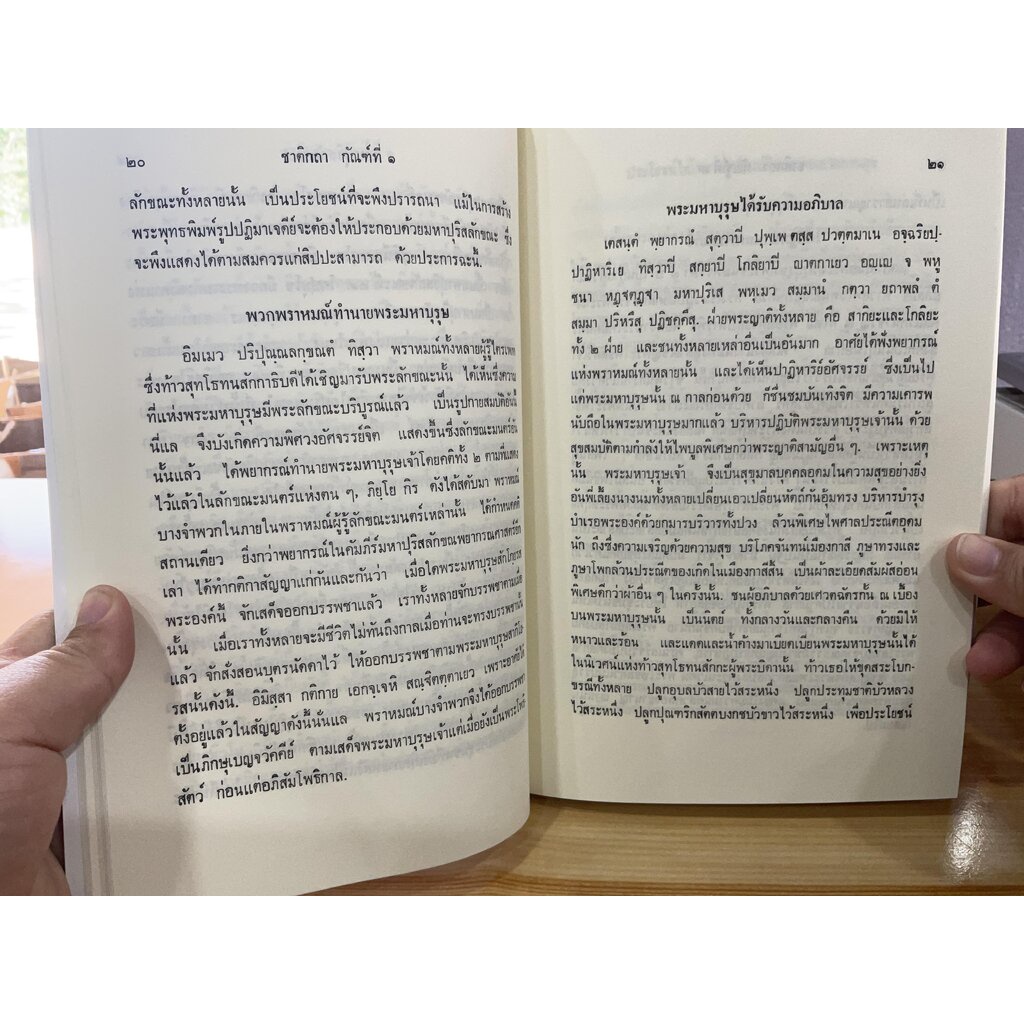 ๒๐ ชาติกถา กัณฑ์ที่ ๑
ลักขณะทั้งหลายนั้น เป็นประโยชน์ที่จะพึงปรารถนา แม้ในการสร้าง
พระพุทธพิมพ์รูปปฏิมาเจดีย์จะต้องให้ประกอบด้วยมหาปุริสลักขณะ ซึ่ง
จะพึงแสดงได้ตามสมควรแก่สิปปะสามารถ ด้วยประการฉะนี้.
พวกพราหมณ์ทำนายพระมหาบุรุษ
อิมเมว ปริปุณฺณลกฺขณตํ ทิสฺวา พราหมณ์ทั้งหลายผู้รู้ไตรเพท
ซึ่งท้าวสุทโธทนสักกาธิบดีได้เชิญมารับพระลักขณะนั้น ได้เห็นซึ่งความ
ที่แห่งพระมหาบุรุษมีพระลักขณะบริบูรณ์แล้ว เป็นรูปกายสมบัติอันนี้
นี่แล จึงบังเกิดความพิศวงอัศจรรย์จิต แสดงขึ้นซึ่งลักขณะมนตร์อัน
นั้นแล้ว ได้พยากรณ์ทำนายพระมหาบุรุษเจ้าโดยคติทั้ง ๒ ตามที่แสดง
ไว้แล้วในลักขณะมนตร์แห่งตน ๆ, ภิยฺโย กิร ดังได้สดับมา พราหมณ์
บางจำพวกในภายในพราหมณ์ผู้รู้ลักขณะมนตร์เหล่านั้น ได้กำหนดคติ
สถานเดียว ยิ่งกว่าพยากรณ์ในคัมภีร์มหาปุริสลักขณพยากรณศาสตร์อีก
เล่า ได้ทำกติกาสัญญาแก่กันและกันว่า เมื่อใดพระมหาบุรุษสักโกรส
พระองค์นี้ จักเสด็จออกบรรพชาแล้ว เราทั้งหลายจักบรรพชาตามเมื่อ
นั้น เมื่อเราทั้งหลายจะมีชีวิตไม่ทันถึงกาลเมื่อท่านจะทรงบรรพชานั้น
แล้ว จักสั่งสอนบุตรนัดดาไว้ ให้ออกบรรพชาตามพระมหาบุรุษสากิโอ
รสนั้นดังนี้. อิมิสฺสา กติกาย เอกจฺเจหิ สณฺฐิตตฺตาเยว เพราะอาศัยได้
ตั้งอยู่แล้วในสัญญาดังนี้นั่นแล พราหมณ์บางจำพวกจึงได้ออกบรรพชา
เป็นภิกษุเบญจวัคคีย์ ตามเสด็จพระมหาบุรุษเจ้าแต่เมื่อยังเป็นพระโพธิ
สัตว์ ก่อนแต่อภิสัมโพธิกาล.
๒๑
พระมหาบุรุษได้รับความอภิบาล
เตสนฺตํ พฺยากรณํ สุตฺวาปี ปุพฺเพ ตสฺส ปวตฺตมาเน อจฺฉริยปฺ-
ปาฏิหาริเย ทิสฺวาปี สกฺยาปี โกลิยาปี ญาตกาเยว อญฺเญ จ พหู
ชนา หฏฺฐตุฏฺฐา มหาปุริเส พหุเมว สมฺมานํ กตฺวา ยถาพลํ ตํ
สมฺมา ปริหรึสุ ปฏิชคฺคึสุ. ฝ่ายพระญาติทั้งหลาย คือ สากิยะและโกลิยะ
ทั้ง ๒ ฝ่าย และชนทั้งหลายเหล่าอื่นเป็นอันมาก อาศัยได้ฟังพยากรณ์
แห่งพราหมณ์ทั้งหลายนั้น และได้เห็นปาฏิหาริย์อัศจรรย์ ซึ่งเป็นไป
แด่พระมหาบุรุษนั้น ณ กาลก่อนด้วย ก็ชื่นชมบันเทิงจิต มีความเคารพ
นับถือในพระมหาบุรุษมากแล้ว บริหารปฏิบัติพระมหาบุรุษเจ้านั้น ด้วย
สุขสมบัติตามกำลังให้ไพบูลพิเศษกว่าพระญาติสามัญอื่น ๆ. เพราะเหตุ
นั้น พระมหาบุรุษเจ้า จึงเป็นสุขุมาลบุคคลอุดมในความสุขอย่างยิ่ง
อันพี่เลี้ยงนางนมทั้งหลายเปลี่ยนเอวเปลี่ยนหัตถ์กันอุ้มทรง บริหารบำรุง
บำเรอพระองค์ด้วยกุมารบริวารทั้งปวง ล้วนพิเศษไพศาลประณีตอุดม
นัก ถึงซึ่งความเจริญด้วยความสุข บริโภคจันทน์เมืองกาสี ภูษาทรงและ
ภูษาโพกล้วนประณีตของเกิดในเมืองกาสีสิ้น เป็นผ้าละเอียดสัมผัสอ่อน
พิเศษดีกว่าผ้าอื่น ๆ ในครั้งนั้น. ชนผู้อภิบาลด้วยเศวตฉัตรกั้น ณ เบื้อง
บนพระมหาบุรุษนั้น เป็นนิตย์ ทั้งกลางวันและกลางคืน ด้วยมิให้
หนาวและร้อน และแดดและน้ำค้างมาเบียดเบียนพระมหาบุรุษนั้นได้
ในนิเวศน์แห่งท้าวสุทโธทนสักกะผู้พระบิดานั้น ท้าวเธอให้ขุดสระโบก-
ขรณีทั้งหลาย ปลูกอุบลบัวสายไว้สระหนึ่ง ปลูกประทุมชาติบัวหลวง
ไว้สระหนึ่ง ปลูกปุณฑริกสัตตบงกชบัวขาวไว้สระหนึ่ง เพื่อประโยชน์